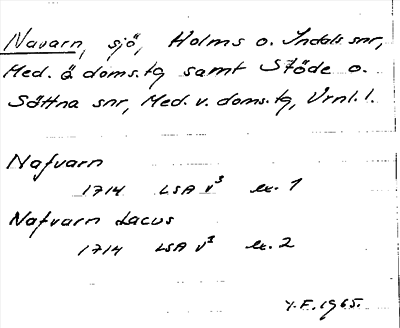 Navarn, sjö, Holms o. Indals snr,
Med. ö doms.tg samt Stöde o.
Sättna snr, Med. v. doms.tg, Vrnl. l.
Nafvarn
1714 LSA v³ ex. 1
Nafvarn Lacus
1714 LSA v³ ex. 2
Y.F. 1965.